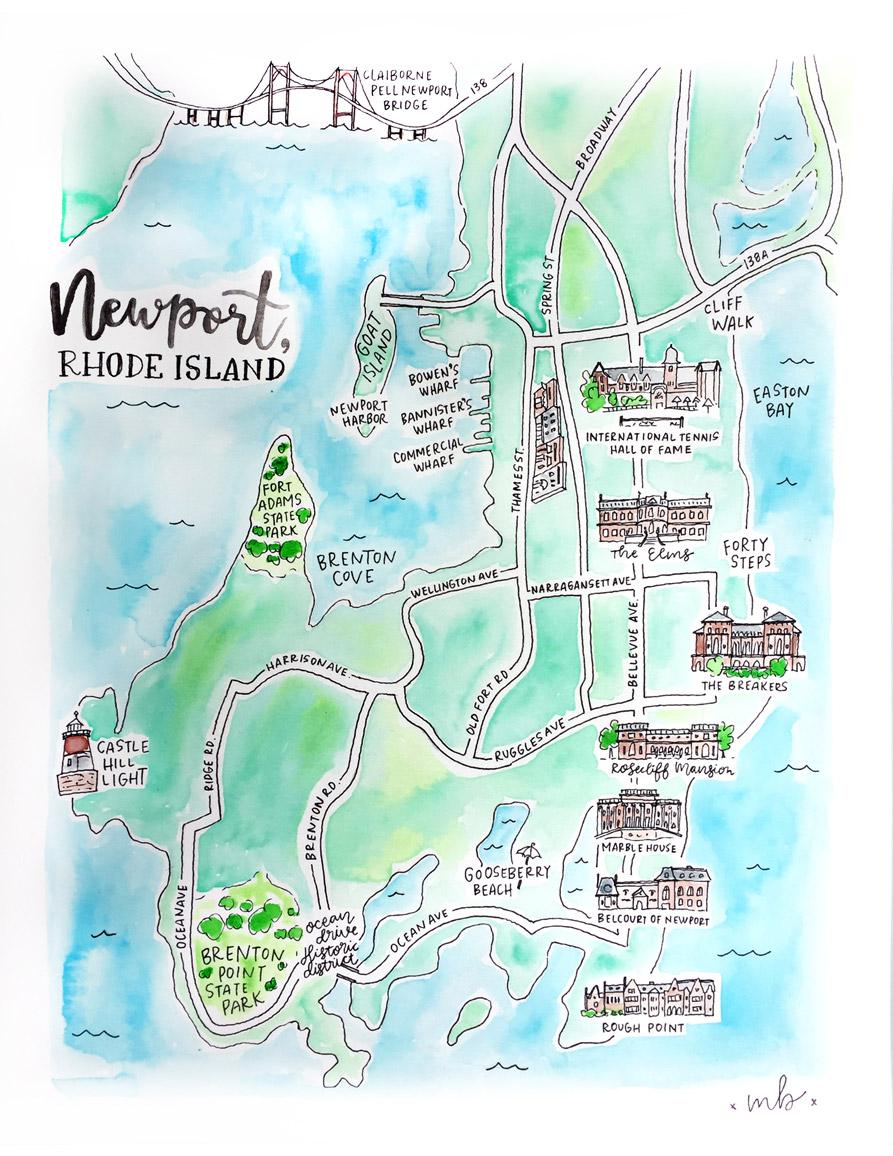 CLAIBORNE
PELL NEWPORT
BRIDGE
138
BROADWAY
Newport,
RHODE ISLAND
GOAT
ISLAND
SPRING ST
138A
CLIFF
WALK
NEWPORT
HARBOR
BOWEN'S
WHARF
BANNISTER'S
WHARF
COMMERCIAL
WHARF
THAMES ST.
INTERNATIONAL TENNIS
HALL OF FAME
EASTON
BAY
FORT
ADAMS
STATE
PARK
BRENTON
COVE
The Elms
FORTY
STEPS
WELLINGTON AVE
NARRAGANSETT AVE
BELLEVUE AVE.
THE BREAKERS
HARRISON AVE.
OLD FORT RD
RUGGLES AVE
CASTLE
HILL
LIGHT
RIDGE RD.
Rosecliff Mansion
BRENTON RD.
MARBLE HOUSE
GOOSEBERRY
BEACH
BELCOURT OF NEWPORT
OCEAN AVE
OCEAN AVE
ocean
drive
Historic
district
BRENTON
POINT
STATE
PARK
ROUGH POINT
x mb x